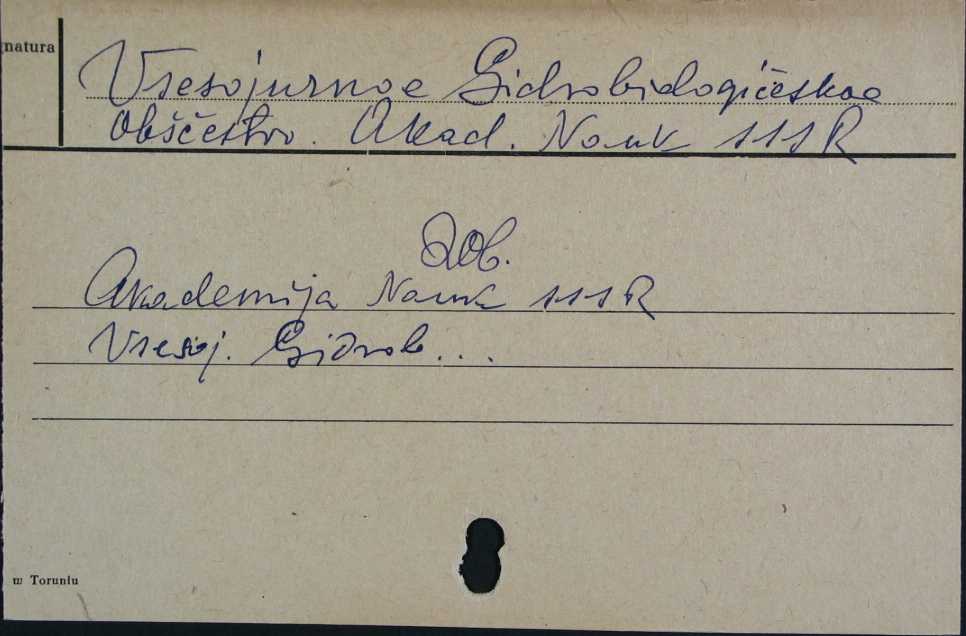 natura
Vsesojuznoe Gidrobiologičeskoe
obščestvo. Akad. Nauk SSSR
Zob.
Akademija Nauk SSSR
Vsesoj. Gidrob...
w Toruniu